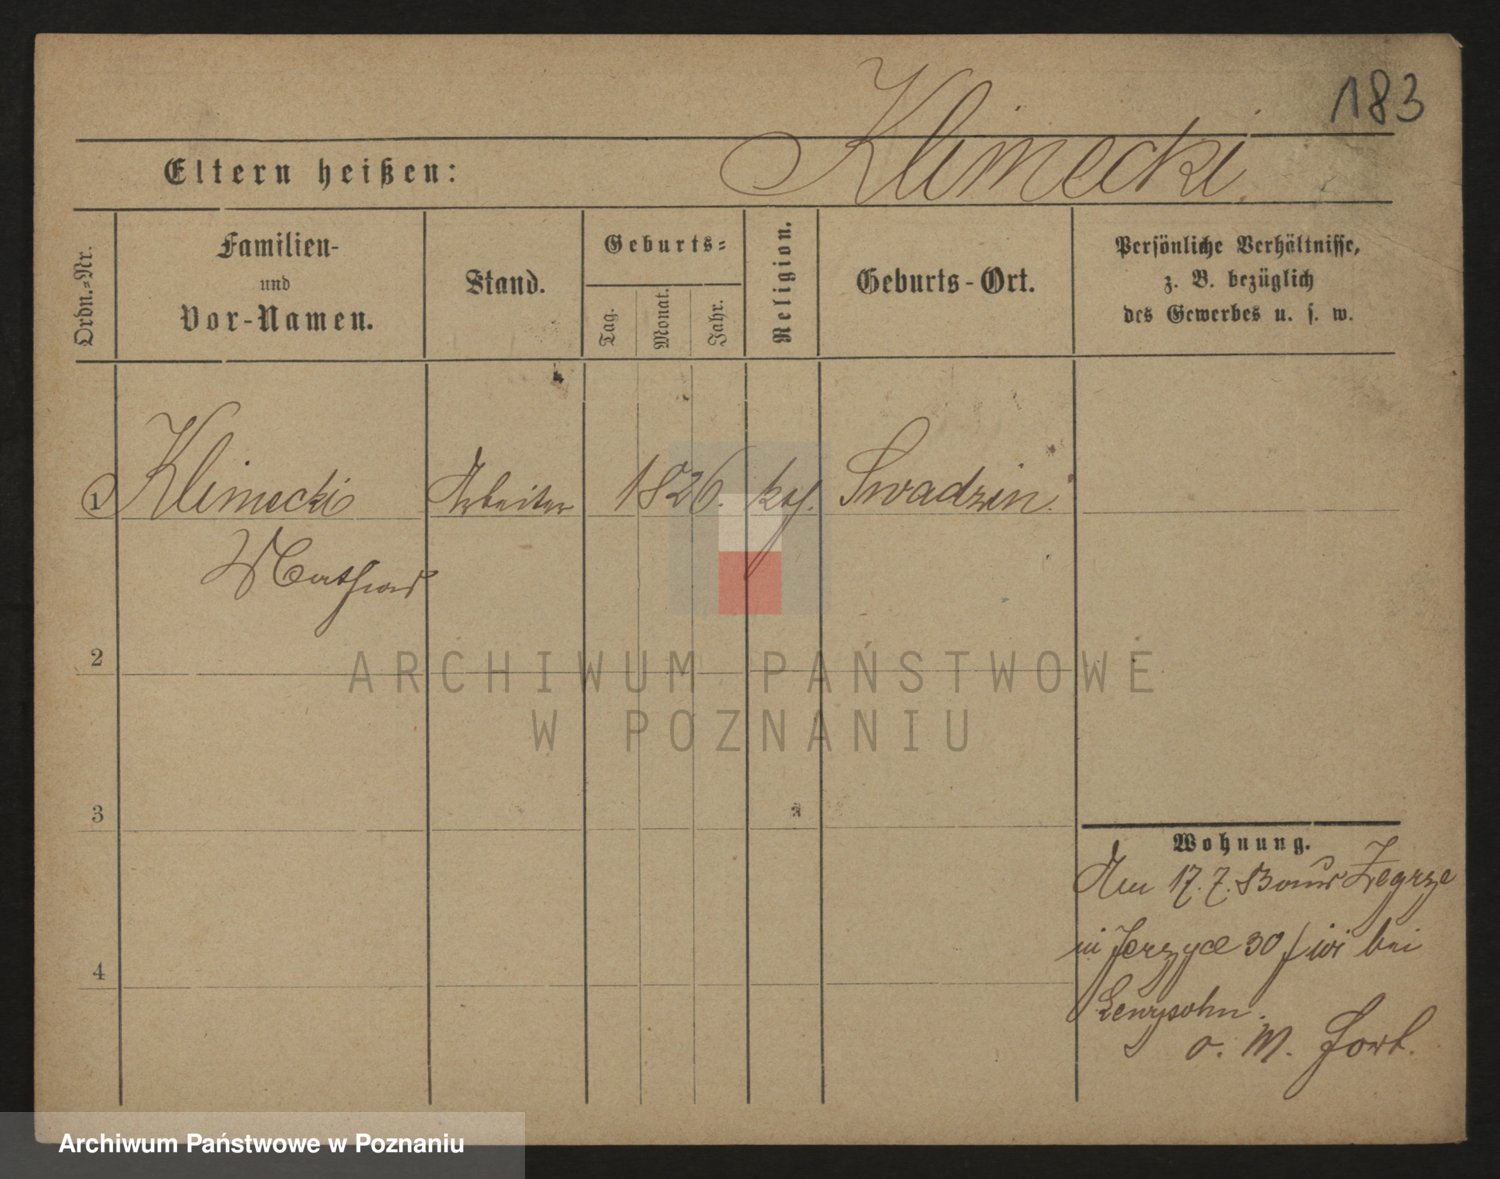 183
Klimecki
Eltern heißen:
Ordn.-Nr.
Familien-
und
Vor-Namen.
Stand.
Geburts-
Tag.
Monat.
Jahr.
Religion.
Geburts-Ort.
Persönliche Verhältnisse,
z. B. bezüglich
des Gewerbes u. s. w.
1 Klimecki Arbeiter 1826. kth. Swadzin.
Mathias
2
3
4
ARCHIWUM PAŃSTWOWE
W POZNANIU
Wohnung.
17. 7. Zegrze
Jerzyce 30 bei
Lewysohn.
o. M. fort.
Archiwum Państwowe w Poznaniu